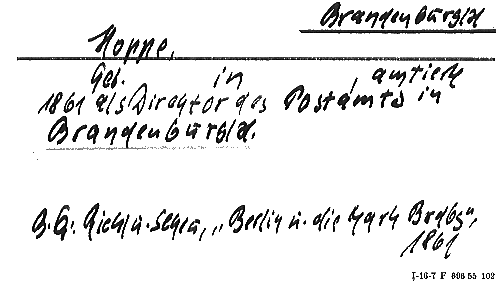 Brandenburg/H
Hoppe,
Geb. in , amtiert
1861 als Direktor des Postamts in
Brandenburg/H.
B.Q. Riehl u. Scheu, "Berlin u. die Mark Brdbg",
1861
I-16-7 F 806 55 102